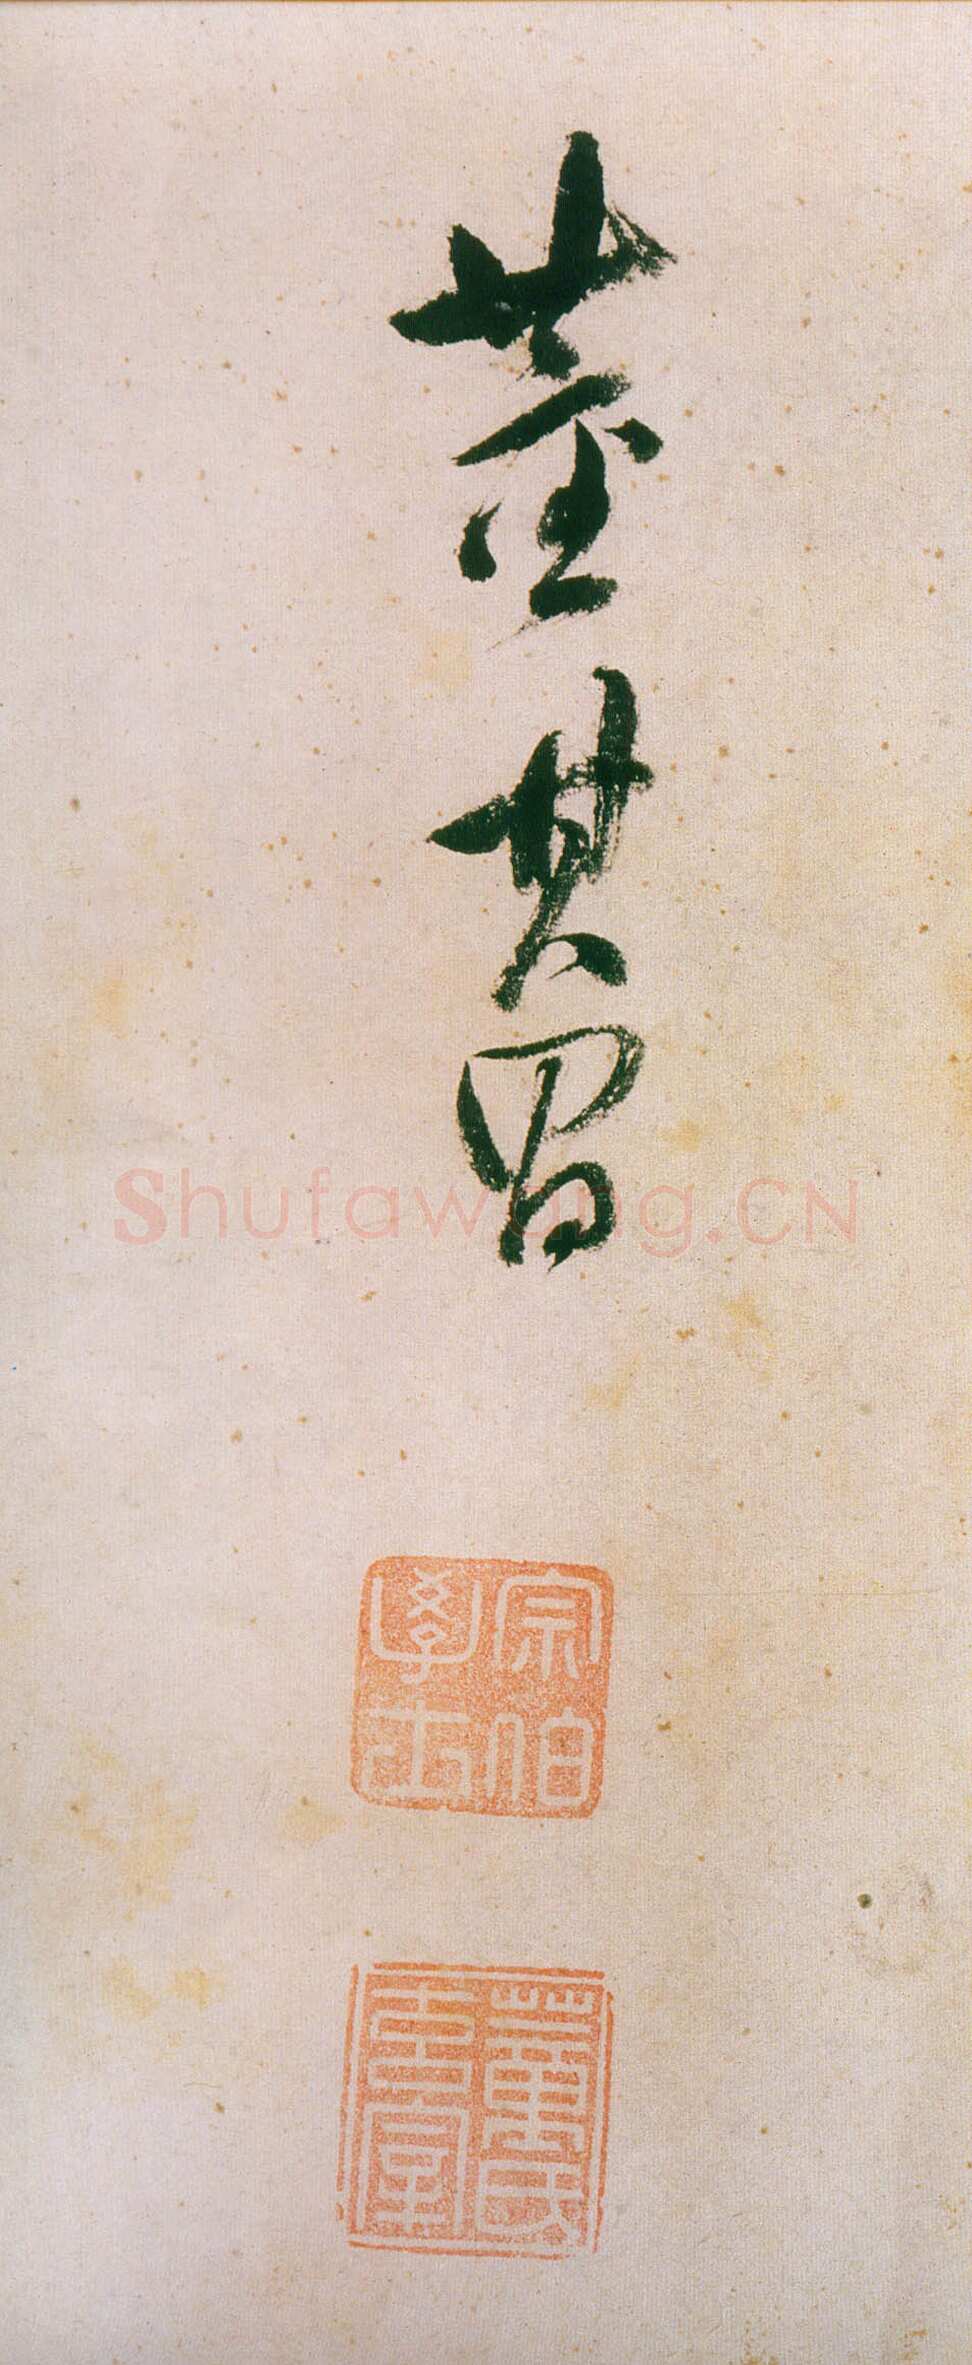 董其昌
Shufawang.CN
宗伯
學士
董氏
玄宰